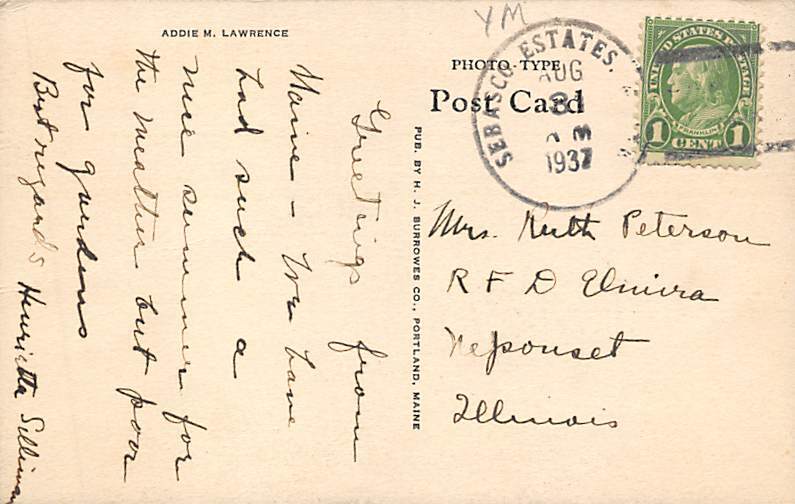 ADDIE M. LAWRENCE
Greetings from
Maine - We have
had such a
nice summer for
the weather but poor
for gardens
Best regards Henrietta Silliman
PUB. BY H. J. BURROWES CO., PORTLAND, MAINE
YM
PHOTO-TYPE
Post Card
SEBASCO ESTATES.
AUG
31
M
1937
UNITED STATES POSTAGE
FRANKLIN
1 CENT 1
Mrs. Ruth Peterson
R F D Elmira
Neponset
Illinois